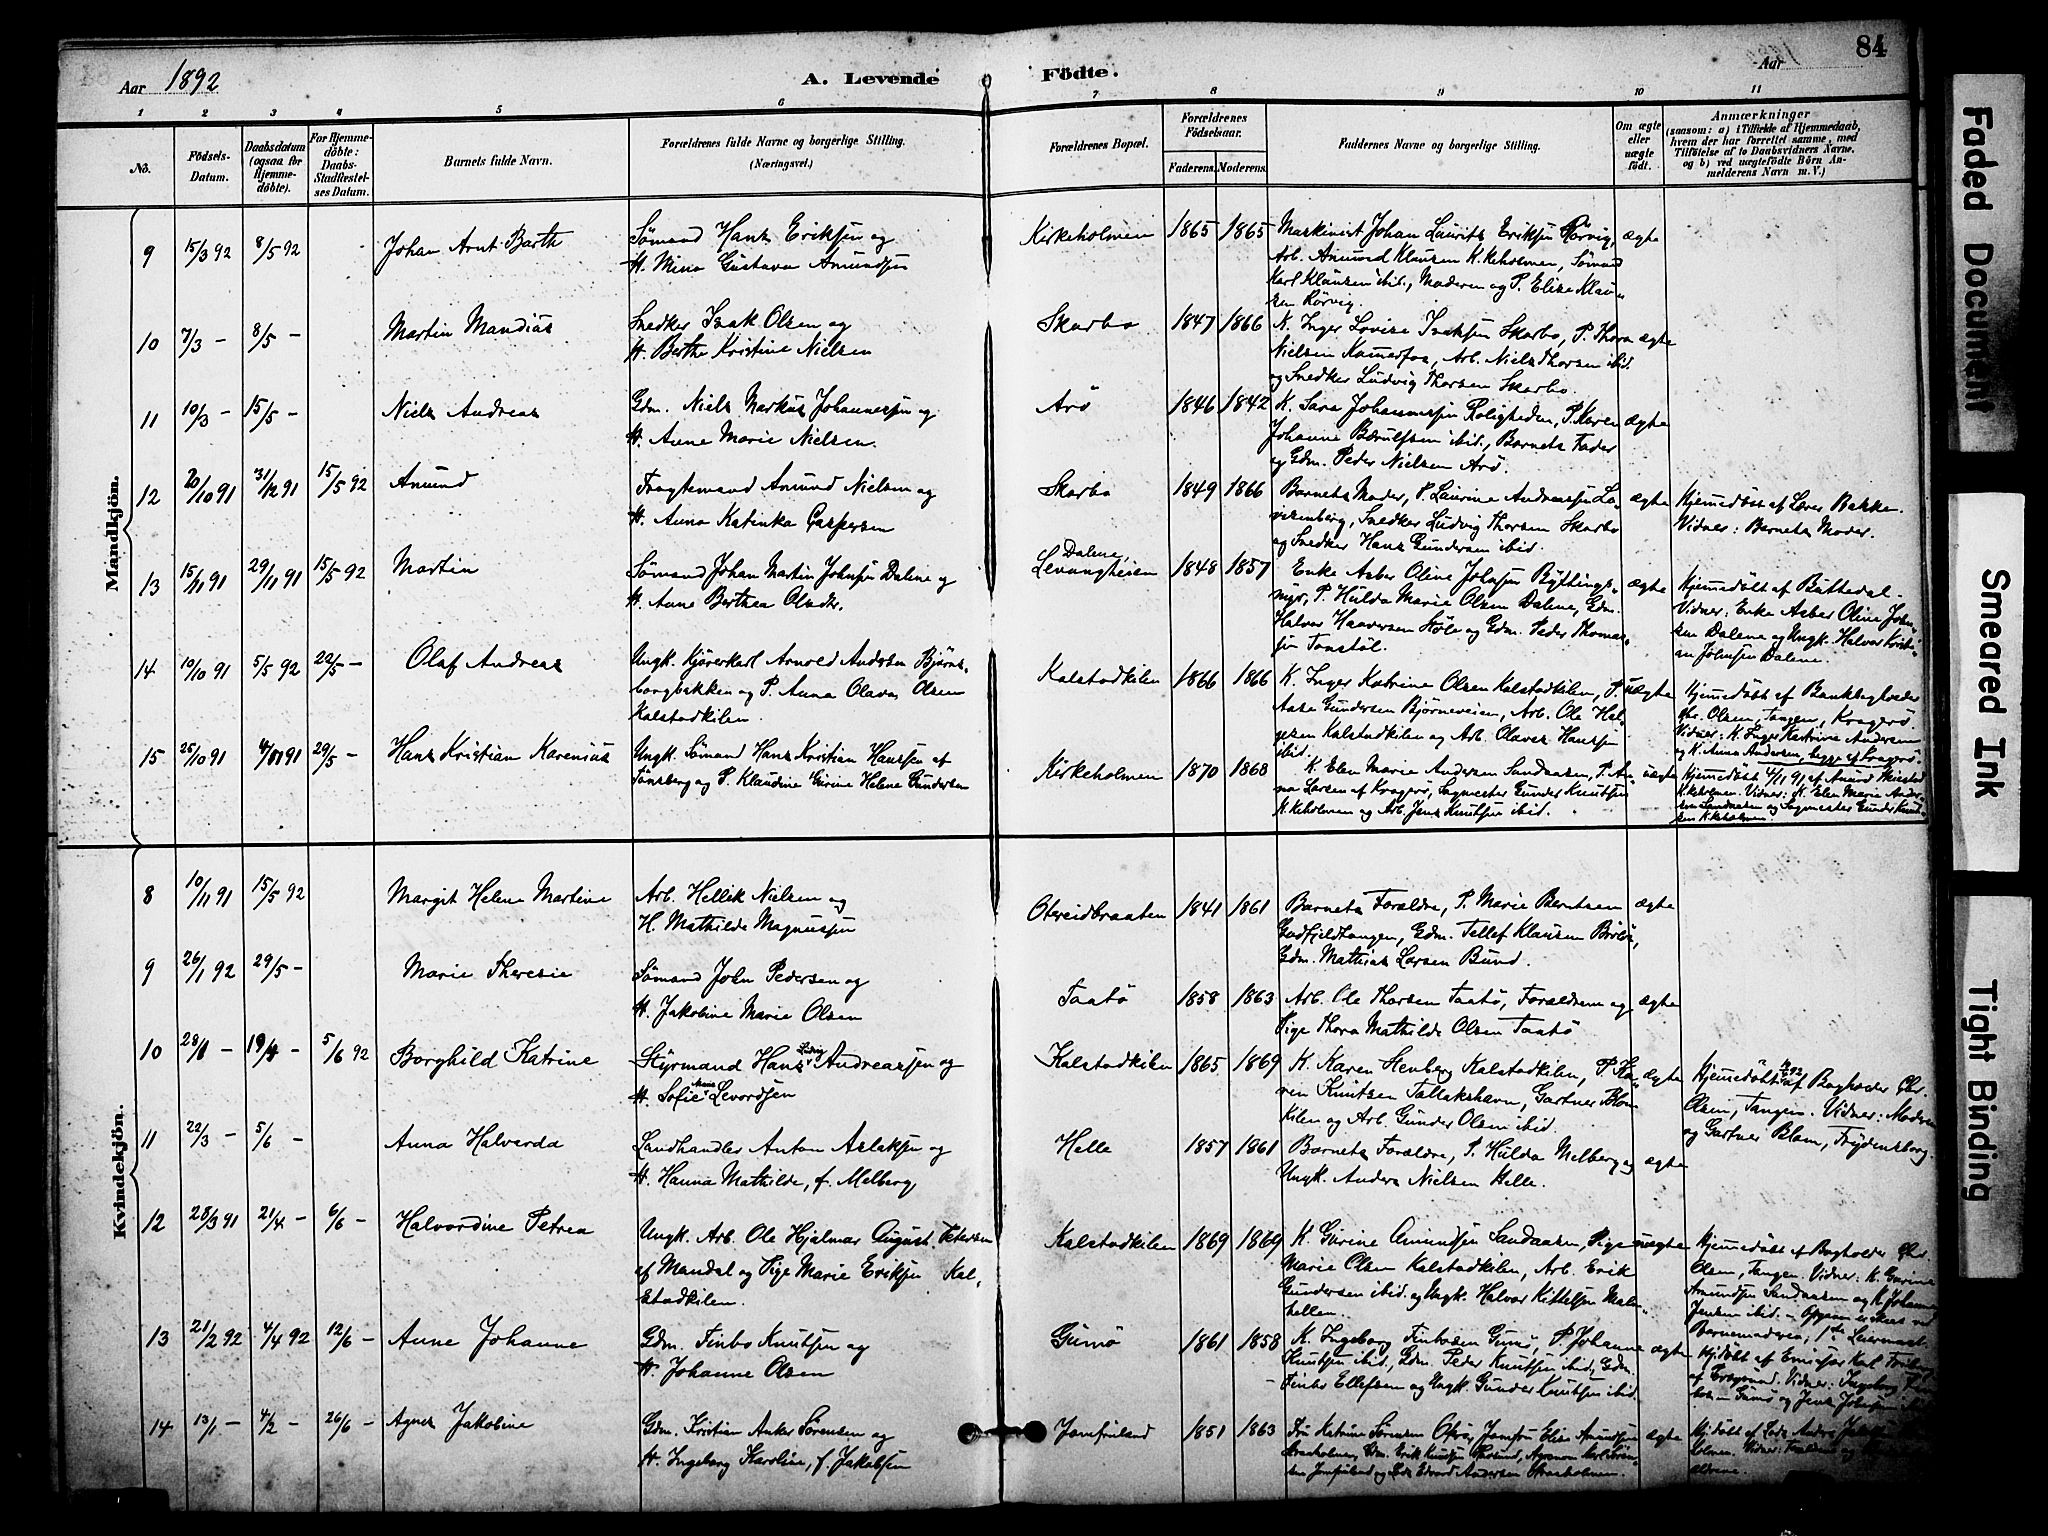 84
Aar 1892
A. Levende Födte.
Aar
1 2 3 4 5 6 7 8 9 10 11
No.
Födsels-Datum.
Daabsdatum (ogsaa for Hjemmedöbte).
For Hjemmedöbte: Daabs-Stadfæstelses Datum.
Barnets fulde Navn.
Forældrenes fulde Navne og borgerlige Stilling. (Næringsvei.)
Forældrenes Bopæl.
Forældrenes Födselsaar.
Faderens. Moderens.
Faddernes Navne og borgerlige Stilling.
Om ægte eller uægte födt.
Anmærkninger
(saasom: a) i Tilfælde af Hjemmedaab, hvem der har forrettet samme, med Tilföielse af to Daabsvidners Navne, og b) ved uægtefödte Börn Anmelderens Navn m. V.)
Mandkjön.
9 15/3 92 8/5 92 Johan Arnt Barth
Sömand Hans Eriksen og
H. Mina Gustava Amundsen
Kirkeholmen 1865 1865
Maskinist Johan Laurits Eriksen Rörvig, ægte
Arb. Amund Klausen K.keholmen, Sömand
Karl Klausen ibid., Moderen og P. Elise Klau-
sen Rörvig.
10 7/3 — 8/5 — Martin Mandius
Snedker Isak Olsen og
H. Berthe Kristine Nielsen
Skarbo 1847 1866
K. Inger Lovise Isaksen Skarbo, P. Thora ægte
Nielsen Kamerfos, Arb. Niels Thorsen ibid.
og Snedker Ludvig Thorsen Skarbo.
11 10/3 — 15/5 — Niels Andreas
Gdm. Niels Markus Johannessen og
H. Anne Marie Nielsen.
Arö 1846 1842
K. Sara Johannessen Roligheden, P. Karen ægte
Johanne Bærulfsen ibid., Barnets Fader
og Gdm. Peder Nielsen Arö.
12 20/10 91 31/12 91 15/5 92 Amund
Fragtemand Amund Nielsen og
H. Anna Katinka Caspersen
Skarbo 1849 1866
Barnets Moder, P. Laurine Andreassen Lo- ægte
visenberg, Snedker Ludvig Thorsen Skarbo
og Snedker Hans Gundersen ibid.
Hjemmedöbt af Lærer Bakken.
Vidner: Barnets Moder.
13 15/11 91 29/11 91 15/5 92 Martin
Sömand Johan Martin Johnsen Dalene og
H. Anne Berthea Olsdtr.
Dalene,
Levangheien 1848 1857
Enke Asber Oline Johnsen Byttings- ægte
myr, P. Hulda Marie Olsen Dalene, Gdm.
Halvor Haaversen Stöle og Gdm. Peder Thomas-
sen Tonstöl.
Hjemmedöbt af Buttedal.
Vidner: Enke Asber Oline John-
sen Dalene og Ungk. Halvor Kristi-
an Johnsen Dalene.
14 10/10 91 5/5 92 22/5 — Olaf Andreas
Ungk. Kjörerkarl Arnold Andersen Björns-
borgbakken og P. Anna Olava Olsen
Kalstadkilen.
Kalstadkilen 1866 1866
K. Inger Katrine Olsen Kalstadkilen, P. uægte
Aase Gundersen Björneveien, Arb. Ole Hal-
gesen Kalstadkilen og Arb. Olaves Hanssen
ibid.
Hjemmedöbt af Bankbogholder
Chr. Olsen, Tangen, Kragerö.
Vidner: K. Inger Katrine Andersen
og K. Anna Andersen, begge af Kragerö.
15 25/10 91 4/11 91 29/5 — Hans Kristian Karenius
Ungk. Sömand Hans Kristian Hanssen af
Tönsberg og P. Klaudine Gurine Helene Gundersen
Kirkeholmen 1870 1868
K. Elen Marie Andersen Sandaasen, P. An- uægte
na Larsen af Kragerö, Sagmester Gunder Knutsen
K.keholmen og Arb. Jens Knutsen ibid.
Hjemmedöbt 4/11 91 af Amund
K.keholmen. Vidner: K. Elen Marie Ander-
sen Sandaasen og Sagmester Gunder Knut-
sen K.keholmen.
Kvindekjön.
8 10/11 91 15/5 92 Margit Helene Martine
Arb. Hellik Nielsen og
H. Mathilde Magnussen
Otereidbraaten 1841 1861
Barnets Forældre, P. Marie Berntsen ægte
Gudfjeldtangen, Gdm. Tellef Klausen Börtö,
Gdm. Mathias Larsen Bund.
9 26/1 92 29/5 — Marie Theresie
Sömand John Pedersen og
H. Jakobine Marie Olsen
Taatö 1858 1863
Arb. Ole Thorsen Taatö, Forældrene og ægte
Pige Thora Mathilde Olsen Taatö
10 28/1 — 19/4 — 5/6 92 Borghild Katrine
Styrmand Hans Ludvig Andreassen og
H. Sofie Marie Levordsen
Kalstadkilen 1865 1869
K. Karen Stenberg Kalstadkilen, P. Ka- ægte
ren Knutsen Tallakshavn, Gartner Blom
Kilen og Arb. Gunder Olsen ibid.
Hjemmedöbt af Bogholder Chr.
Olsen, Tangen. Vidner: Moderen
og Gartner Blom, Frydensborg.
11 22/3 — 5/6 — Anna Halvarda
Landhandler Anton Aslaksen og
H. Hanna Mathilde, f. Melberg,
Helle 1857 1861
Barnets Forældre, P. Hulda Melberg og ægte
Ungk. Anders Nielsen Helle.
12 28/3 91 21/4 — 6/6 — Halvordine Petrea
Ungk. Arb. Ole Hjalmar August Petersen
af Mandal og Pige Marie Eriksen Kal-
stadkilen.
Kalstadkilen 1869 1869
K. Gurine Amundsen Sandaasen, Pige uægte
Marie Olsen Kalstadkilen, Arb. Erik
Gundersen ibid. og Ungk. Halvor Kittelsen Malm-
hellen.
Hjemmedöbt af Bogholder Chr.
Olsen, Tangen. Vidner: K. Gurine
Amundsen Sandaasen og K. Johanne
Jensen ibid. — Opgaven er skeet ved
Barnemoderen, 1ste Leiermaal.
13 21/2 92 4/4 92 12/6 — Anne Johanne
Gdm. Finbo Knutsen og
H. Johanne Olsen
Gumö 1861 1858
K. Ingeborg Finbosen Gumö, P. Johanne ægte
Knutsen ibid., Gdm. Peder Knutsen ibid., Gdm.
Finbo Ellefsen og Ungk. Gunder Knutsen ibid.
Hjdöbt af Emissær Karl
Vidner: Ingeborg
Gumö og Jens Johnsen
14 13/1 — 4/2 — 26/6 — Agnes Jakobine
Gdm. Kristian Anker Sörensen og
H. Ingeborg Karoline, f. Jakobsen
Jomfruland 1851 1863
Fru Katrine Sörensen Okö, Jomfru Elise Amundsen ægte
Gdm. Erik Knutsen Agronom Karl Sören-
sen Jomfruland og Lods Edvard Andersen
Hjdöbt af Lods Anders
Vidner: Forældrene og